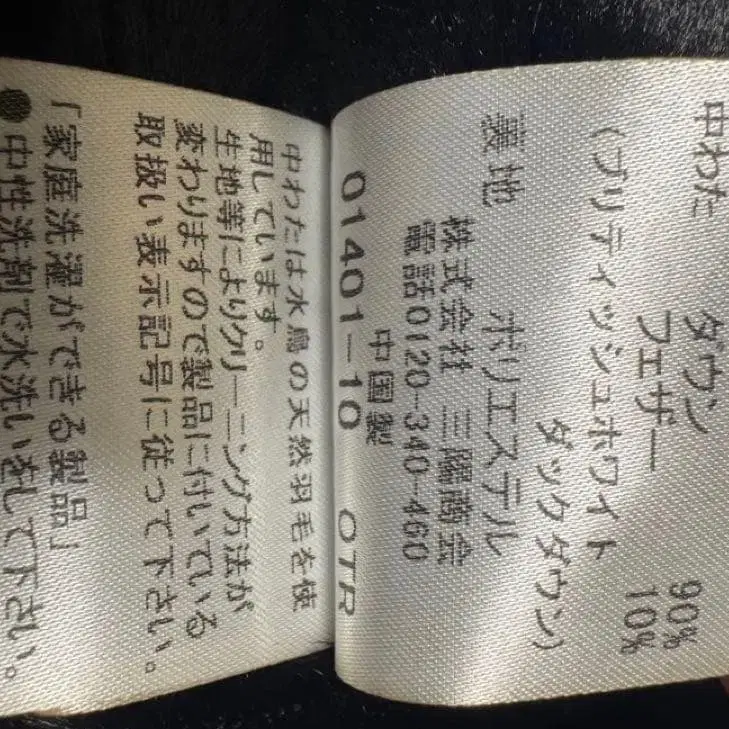 中わた ダウン 90%
フェザー 10%
(ブリティッシュホワイト
ダックダウン)
裏地 ポリエステル
株式会社 三陽商会
電話0120-340-460
中国製
01401-10 OTR
中わたは水鳥の天然羽毛を使
用しています。
生地等によりクリーニング方法が
変わりますので製品に付いている
取扱い表示記号に従って下さい。
「家庭洗濯ができる製品」
●中性洗剤で水洗いをして下さい。